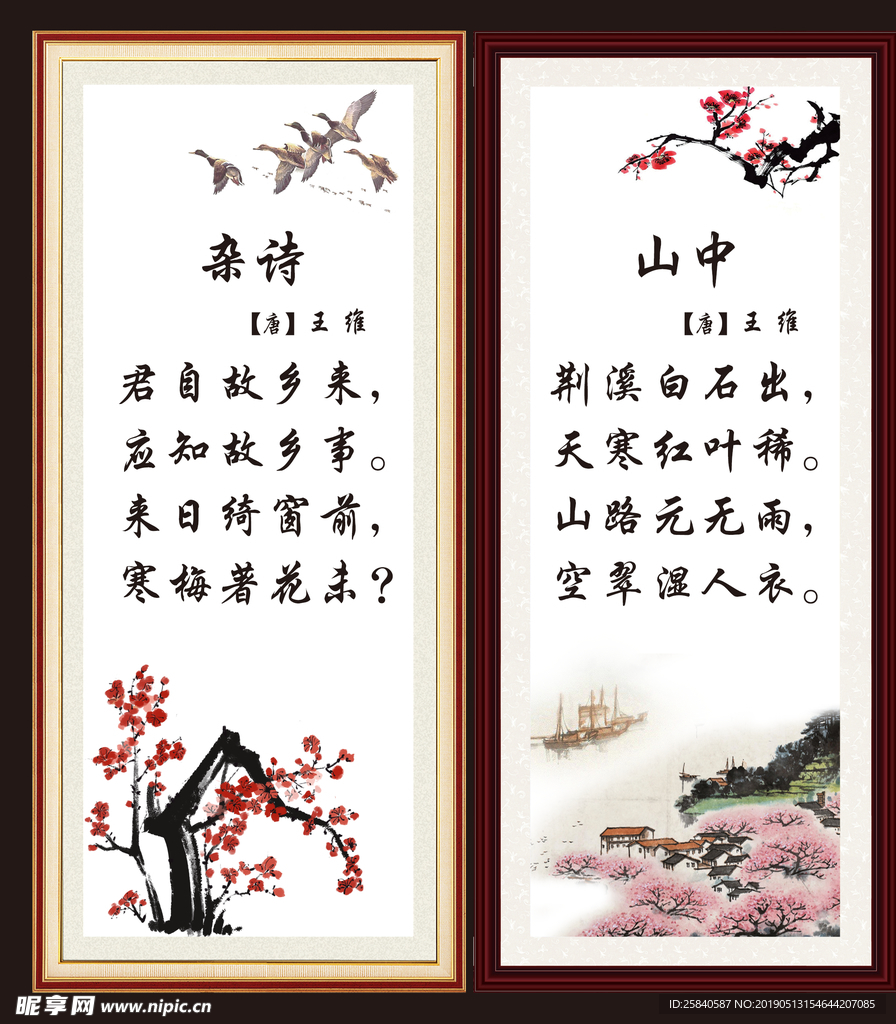 杂诗
【唐】王 维
君自故乡来，
应知故乡事。
来日绮窗前，
寒梅著花未？
山中
【唐】王 维
荆溪白石出，
天寒红叶稀。
山路元无雨，
空翠湿人衣。
昵享网 www.nipic.cn
ID:25840587 NO:20190513154644207085